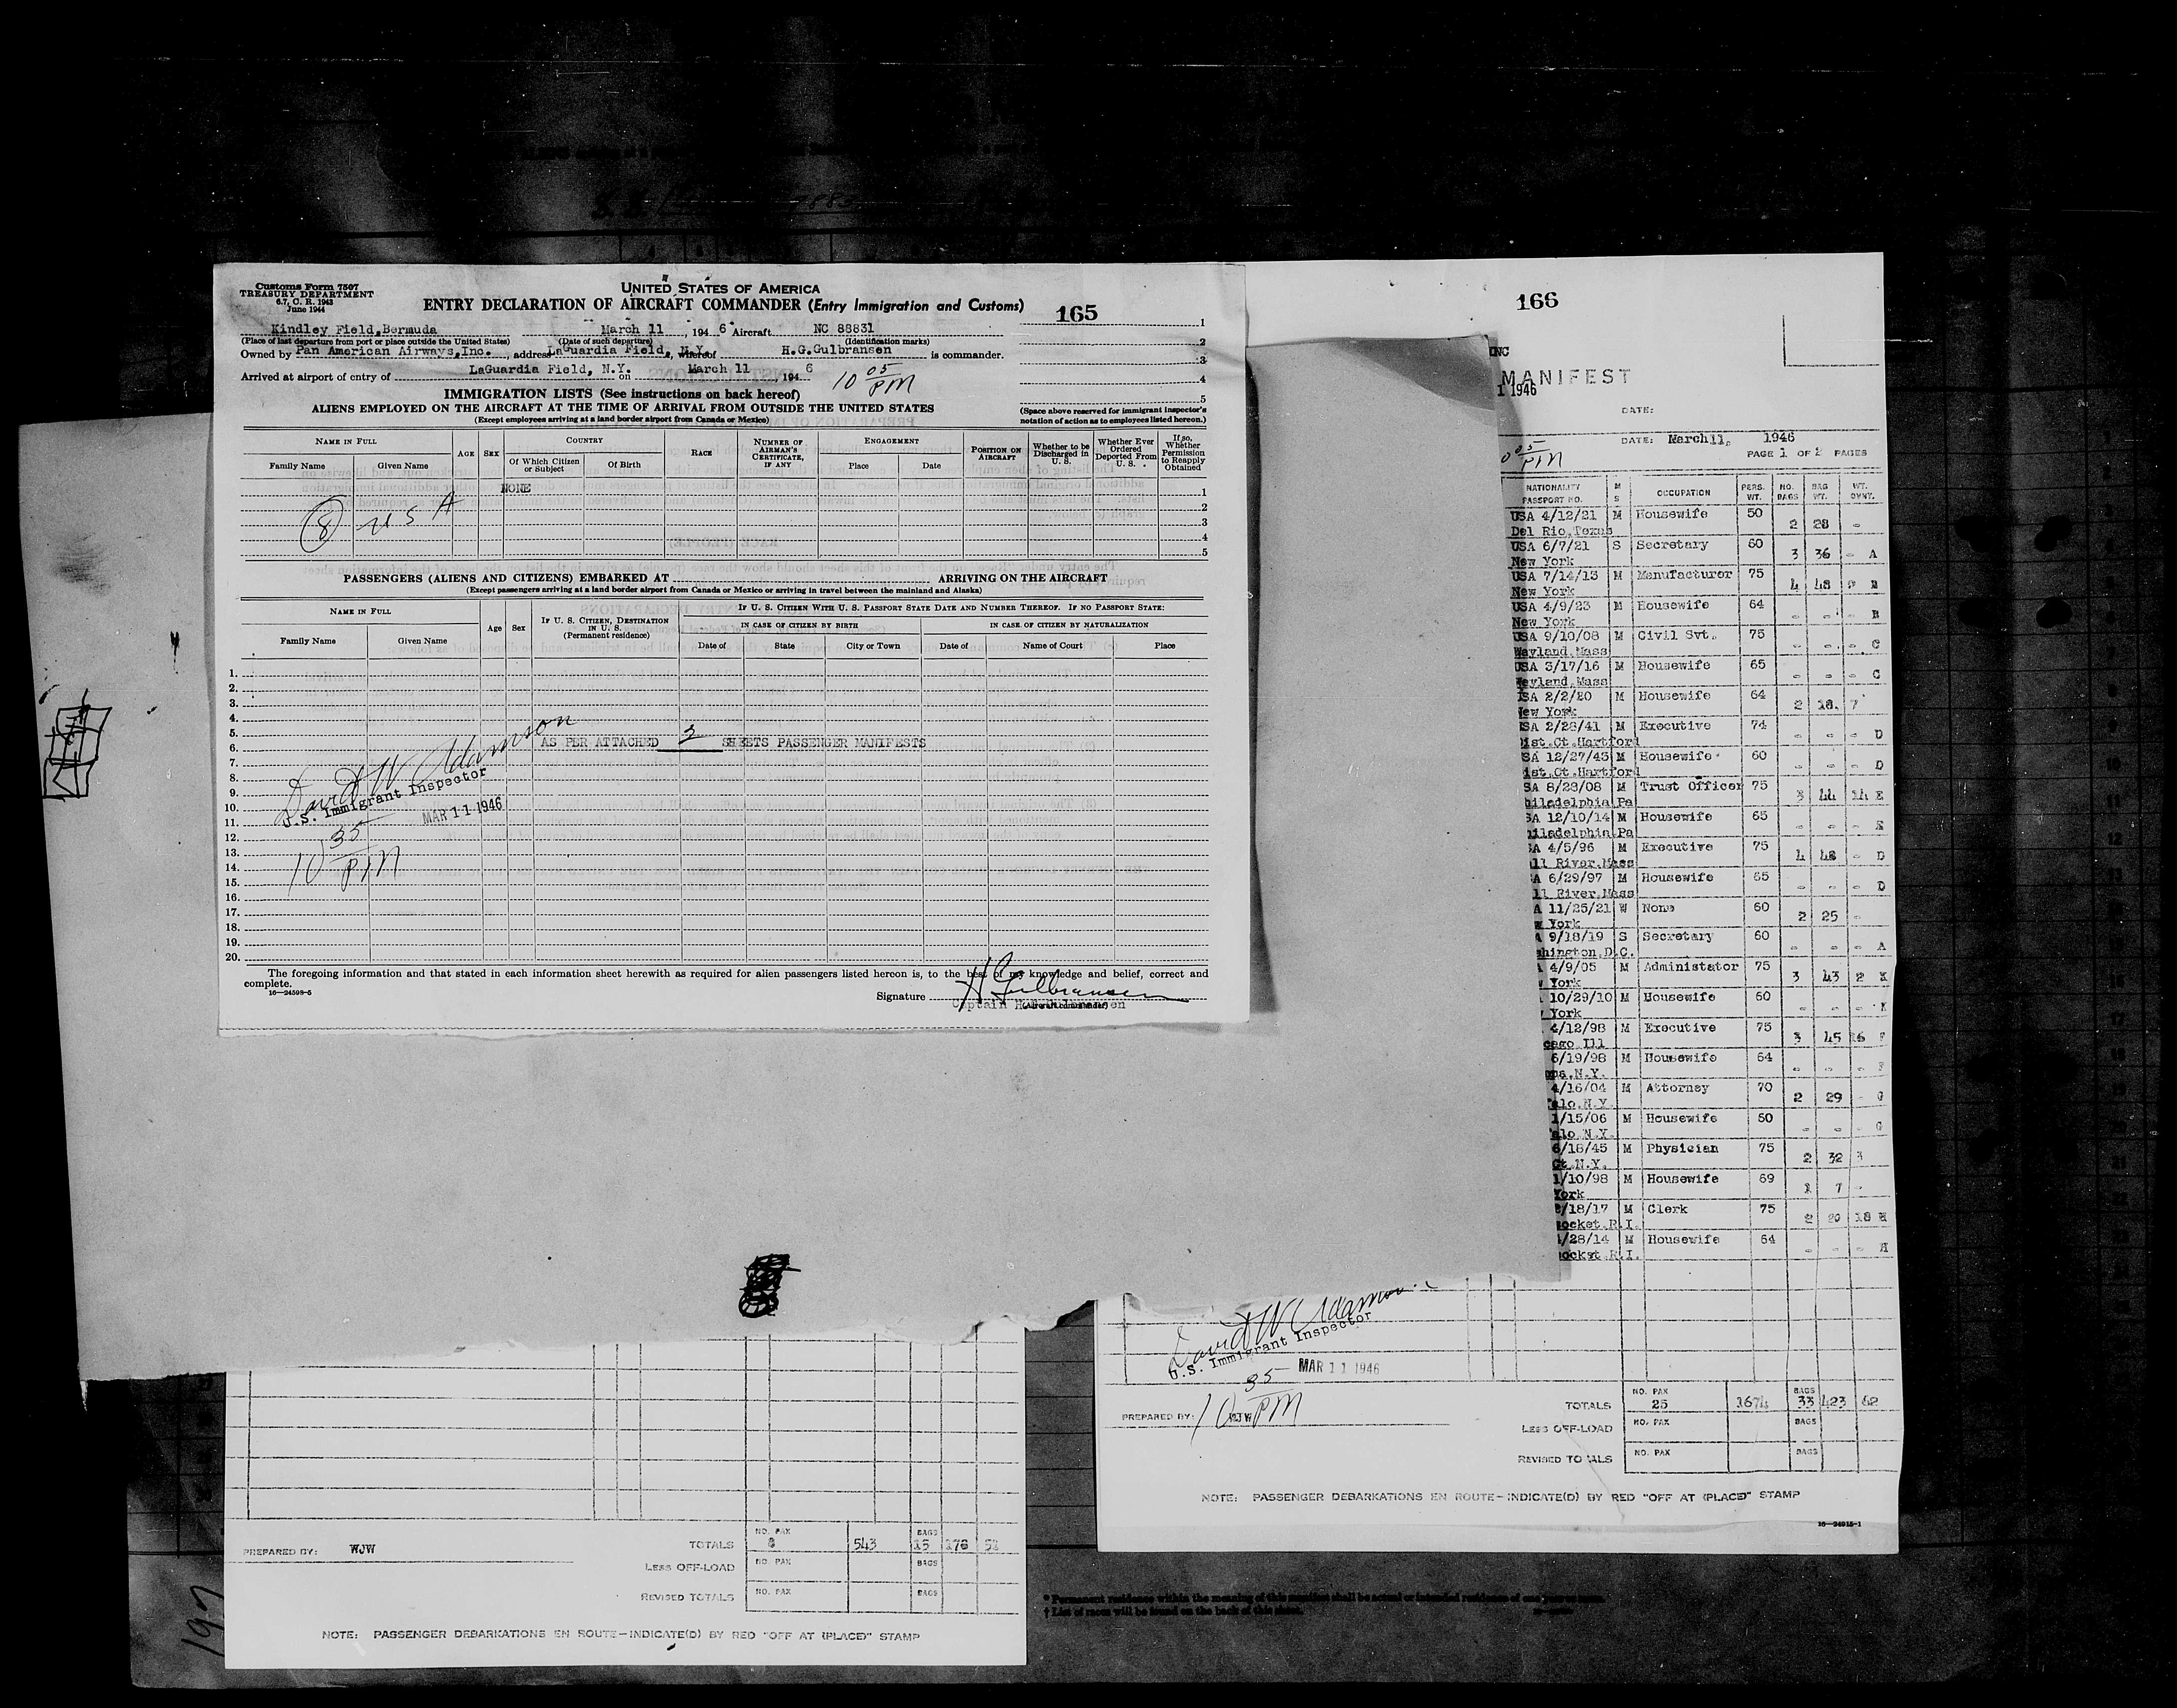 Customs Form 7507
TREASURY DEPARTMENT
6.7, C. R. 1943
June 1944
UNITED STATES OF AMERICA
ENTRY DECLARATION OF AIRCRAFT COMMANDER (Entry Immigration and Customs)
165
Kindley Field, Bermuda March 11, 1946 Aircraft NC 88831
(Place of last departure from port or place outside the United States) (Date of such departure) (Identification marks)
Owned by Pan American Airways, Inc., address LaGuardia Field, N.Y. whereof H.G.Gulbransen is commander.
Arrived at airport of entry of LaGuardia Field, N.Y. on March 11, 1946
10 05 PM
1
2
3
4
5
(Space above reserved for immigrant inspector's notation of action as to employees listed hereon.)
IMMIGRATION LISTS (See instructions on back hereof)
ALIENS EMPLOYED ON THE AIRCRAFT AT THE TIME OF ARRIVAL FROM OUTSIDE THE UNITED STATES
(Except employees arriving at a land border airport from Canada or Mexico)
NAME IN FULL
Family Name Given Name
AGE SEX
COUNTRY
Of Which Citizen or Subject Of Birth
RACE
NUMBER OF AIRMAN'S CERTIFICATE, IF ANY
ENGAGEMENT
Place Date
POSITION ON AIRCRAFT
Whether to be Discharged in U. S.
Whether Ever Ordered Deported From U. S.
If so, Whether Permission to Reapply Obtained
NONE
8 USA
1
2
3
4
5
PASSENGERS (ALIENS AND CITIZENS) EMBARKED AT ARRIVING ON THE AIRCRAFT
(Except passengers arriving at a land border airport from Canada or Mexico or arriving in travel between the mainland and Alaska)
NAME IN FULL
Family Name Given Name
Age Sex
IF U. S. CITIZEN, DESTINATION IN U. S. (Permanent residence)
IF U. S. CITIZEN WITH U. S. PASSPORT STATE DATE AND NUMBER THEREOF. IF NO PASSPORT STATE:
IN CASE OF CITIZEN BY BIRTH IN CASE OF CITIZEN BY NATURALIZATION
Date of State City or Town Date of Name of Court Place
1.
2.
3.
4.
5.
6.
7.
8.
9.
10.
11.
12.
13.
14.
15.
16.
17.
18.
19.
20.
AS PER ATTACHED 2 SHEETS PASSENGER MANIFESTS
David W Adamson
U.S. Immigrant Inspector
MAR 11 1946
10 35 PM
The foregoing information and that stated in each information sheet herewith as required for alien passengers listed hereon is, to the best of my knowledge and belief, correct and
complete.
16—24598-5
Signature H Gulbransen
Captain
(Aircraft commander)
166
INC
MANIFEST
1 1946
DATE:
DATE: March 11, 1946
05 PM
PAGE 1 OF 2 PAGES
NATIONALITY PASSPORT NO. M S OCCUPATION PERS. WT. NO. BAGS BAG WT. WT. OVWT.
USA 4/12/21 M Housewife 50 2 28 -
Del Rio, Texas
USA 6/7/21 S Secretary 60 3 36 - A
New York
USA 7/14/13 M Manufacturer 75 4 48 B
New York
USA 4/9/23 M Housewife 64 - - B
New York
USA 9/10/08 M Civil Svt. 75 - - - C
Wayland, Mass
USA 3/17/16 M Housewife 65 - - - C
Wayland, Mass
SA 2/2/20 M Housewife 64 2 18 7
New York
SA 2/28/41 M Executive 74 - - - D
ist.Ct.Hartford
SA 12/27/43 M Housewife 60 - - - D
ist.Ct.Hartford
SA 8/28/08 M Trust Officer 75 3 44 14 E
hiladelphia Pa
SA 12/10/14 M Housewife 65 - - - E
hiladelphia Pa
A 4/5/96 M Executive 75 4 48 - D
ll River, Mass
A 6/29/97 M Housewife 65 - - - D
ll River, Mass
A 11/25/21 W None 60 2 25 -
w York
9/18/19 S Secretary 60 - - - A
shington, D.C.
4/9/05 M Administator 75 3 43 2 K
York
10/29/10 M Housewife 60 - - - K
York
4/12/98 M Executive 75 3 45 16 F
cago Ill
6/19/98 M Housewife 64 - - - F
N.Y.
4/16/04 M Attorney 70 2 29 - G
alo, N.Y.
1/15/06 M Housewife 60 - - - G
alo N.Y.
6/18/45 M Physician 75 2 32 3
Ct. N.Y.
1/10/98 M Housewife 69 1 7 -
York
/18/17 M Clerk 75 2 20 18 H
socket R.I.
/28/14 M Housewife 64 - - - H
socket R.I.
David W Adamson
U.S. Immigrant Inspector
MAR 11 1946
10 35 PM
PREPARED BY: WJW
TOTALS NO. PAX 25 1674 BAGS 33 423 62
LESS OFF-LOAD NO. PAX BAGS
REVISED TOTALS NO. PAX BAGS
NOTE: PASSENGER DEBARKATIONS EN ROUTE—INDICATE(D) BY RED "OFF AT (PLACE)" STAMP
16—24915-1
PREPARED BY: WJW
TOTALS NO. PAX 8 543 BAGS 15 176 51
LESS OFF-LOAD NO. PAX BAGS
REVISED TOTALS NO. PAX BAGS
NOTE: PASSENGER DEBARKATIONS EN ROUTE—INDICATE(D) BY RED "OFF AT (PLACE)" STAMP
197
* Permanent residence within the meaning of this manifest shall be actual or intended residence of one year or more.
† List of races will be found on the back of this sheet.